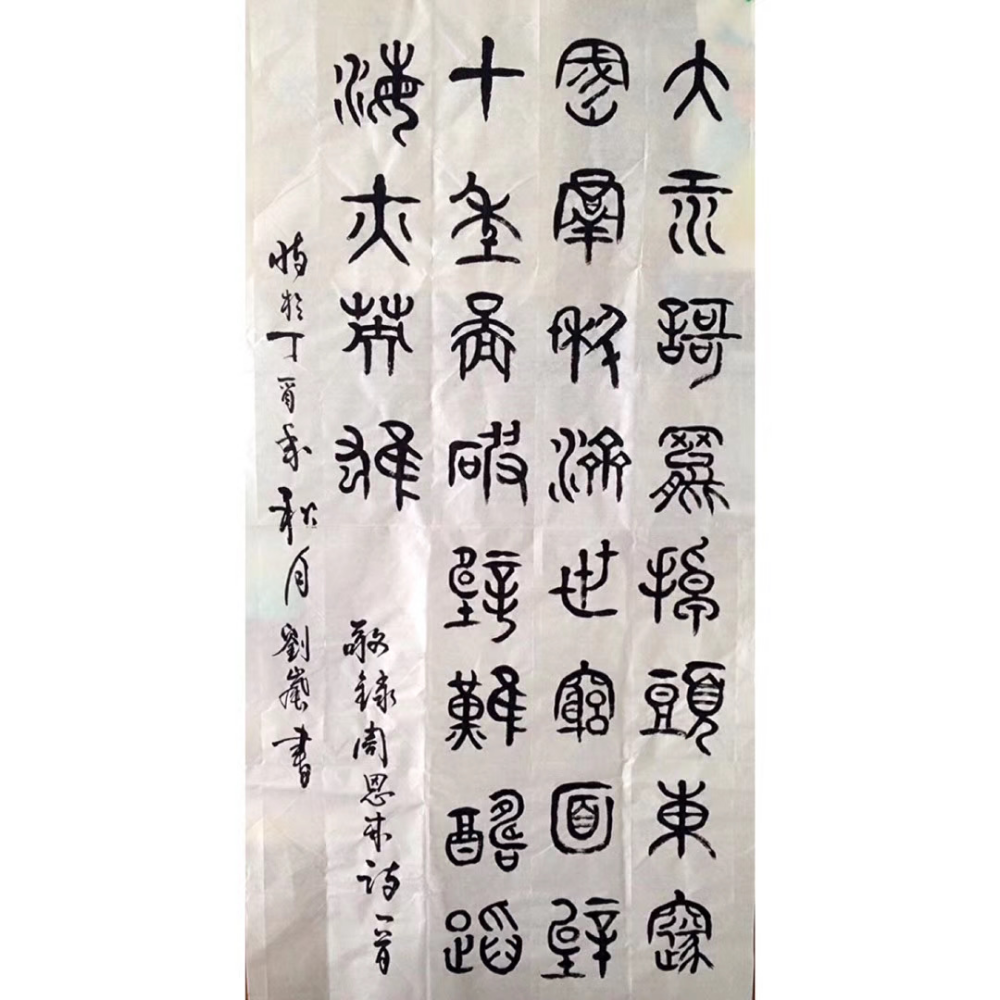 大江謌罷掉頭東邃
密羣科濟世窮面壁
十年啚破壁難酬蹈
海亦英雄
敬錄周恩来詩一首
時於丁酉年秋月劉書